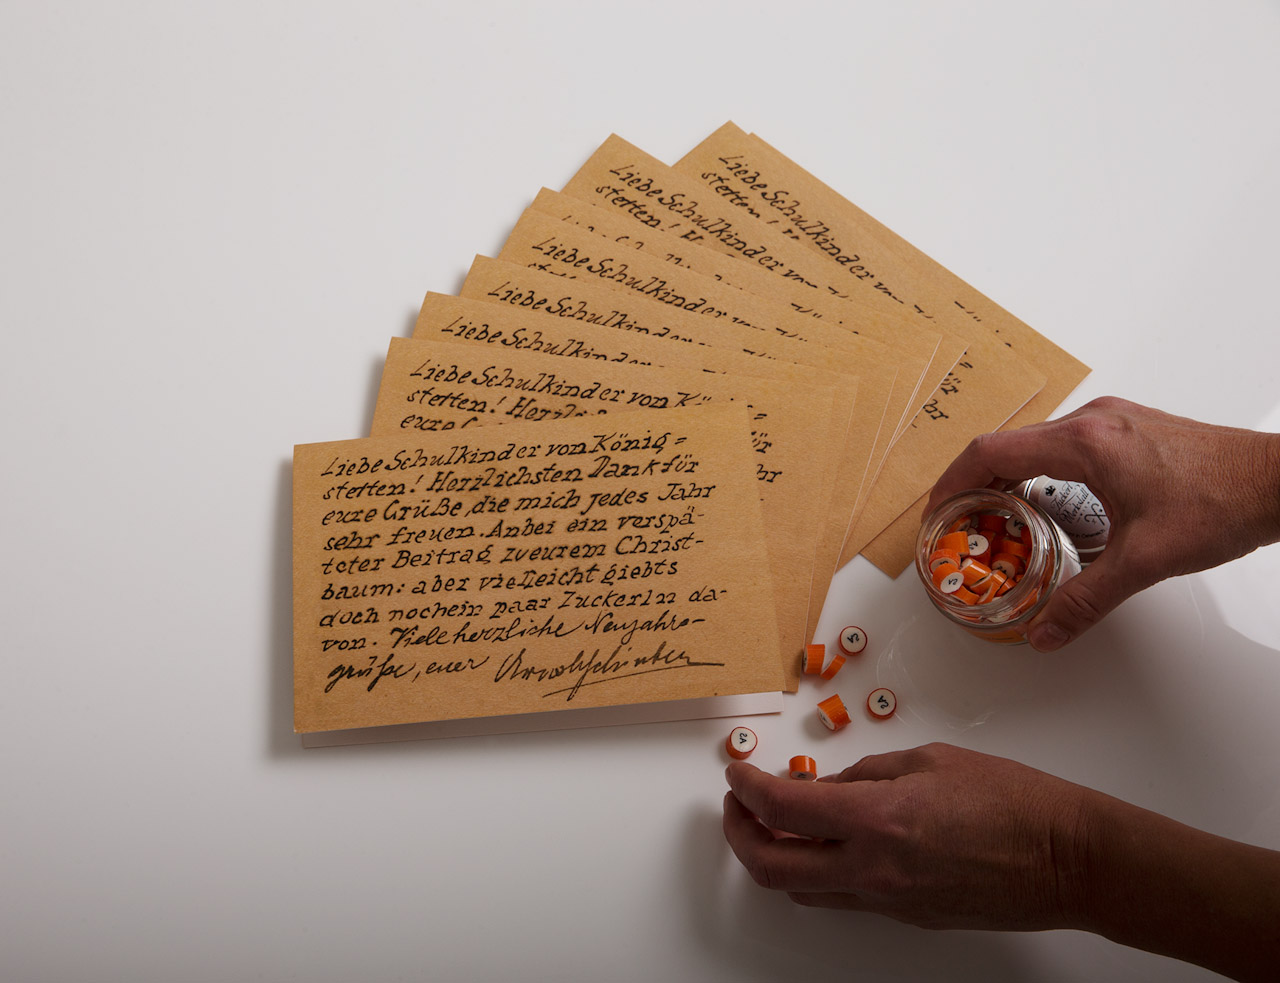 Liebe Schulkinder von König=
stetten! Herzlichsten Dank für
eure Grüße, die mich jedes Jahr
sehr freuen. Anbei ein verspä-
teter Beitrag zu eurem Christ-
baum: aber vielleicht giebts
doch noch ein paar Zuckerln da-
von. Viele herzliche Neujahrs-
grüße, euer
Liebe Schulkinder von Kö
stetten! Herzlic
eure G
Liebe Schulkinder
Liebe Schulkinder
Liebe Schulkinder von
Liebe Schulkinder von
stetten! H
Liebe Schulkinder von
stetten!
=
für
Jahr
=
für
Jahr
Zuckerl
Werkstatt